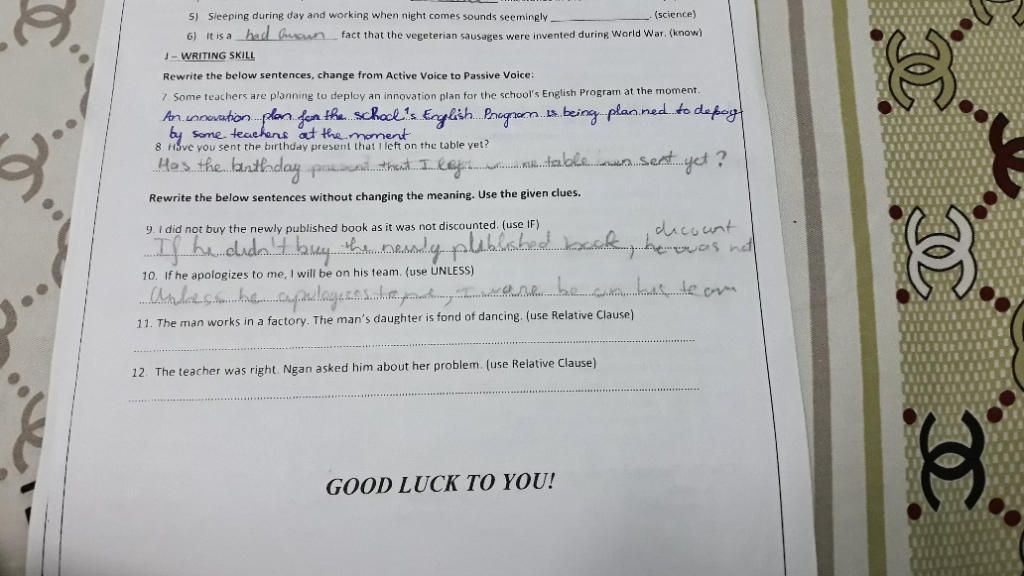 5) Sleeping during day and working when night comes sounds seemingly ____________. (science)
6) It is a had known fact that the vegeterian sausages were invented during World War. (know)
J – WRITING SKILL
Rewrite the below sentences, change from Active Voice to Passive Voice:
7 Some teachers are planning to deploy an innovation plan for the school's English Program at the moment.
An innovation plan for the school's English Program is being planned to deploy
by some teachers at the moment
8. Have you sent the birthday present that I left on the table yet?
Has the birthday present that I left table sent yet ?
Rewrite the below sentences without changing the meaning. Use the given clues.
9. I did not buy the newly published book as it was not discounted. (use IF)
discount
If he didn't buy the newly published book, he was not
10. If he apologizes to me, I will be on his team. (use UNLESS)
Unless he apologizes to me, I be on his team
11. The man works in a factory. The man's daughter is fond of dancing. (use Relative Clause)
12. The teacher was right. Ngan asked him about her problem. (use Relative Clause)
GOOD LUCK TO YOU!